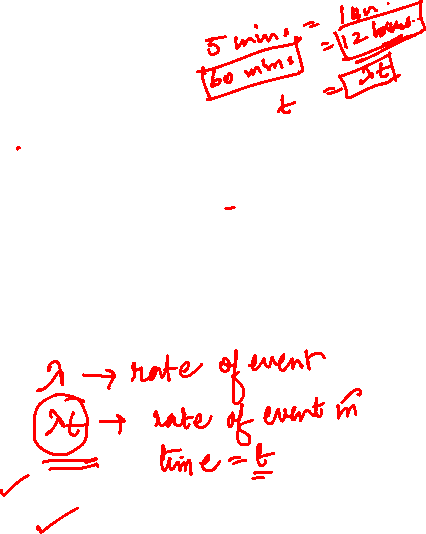 5 mins =
60 mins = 12
t = λt
λ → rate of event
λt → rate of event in
time = t